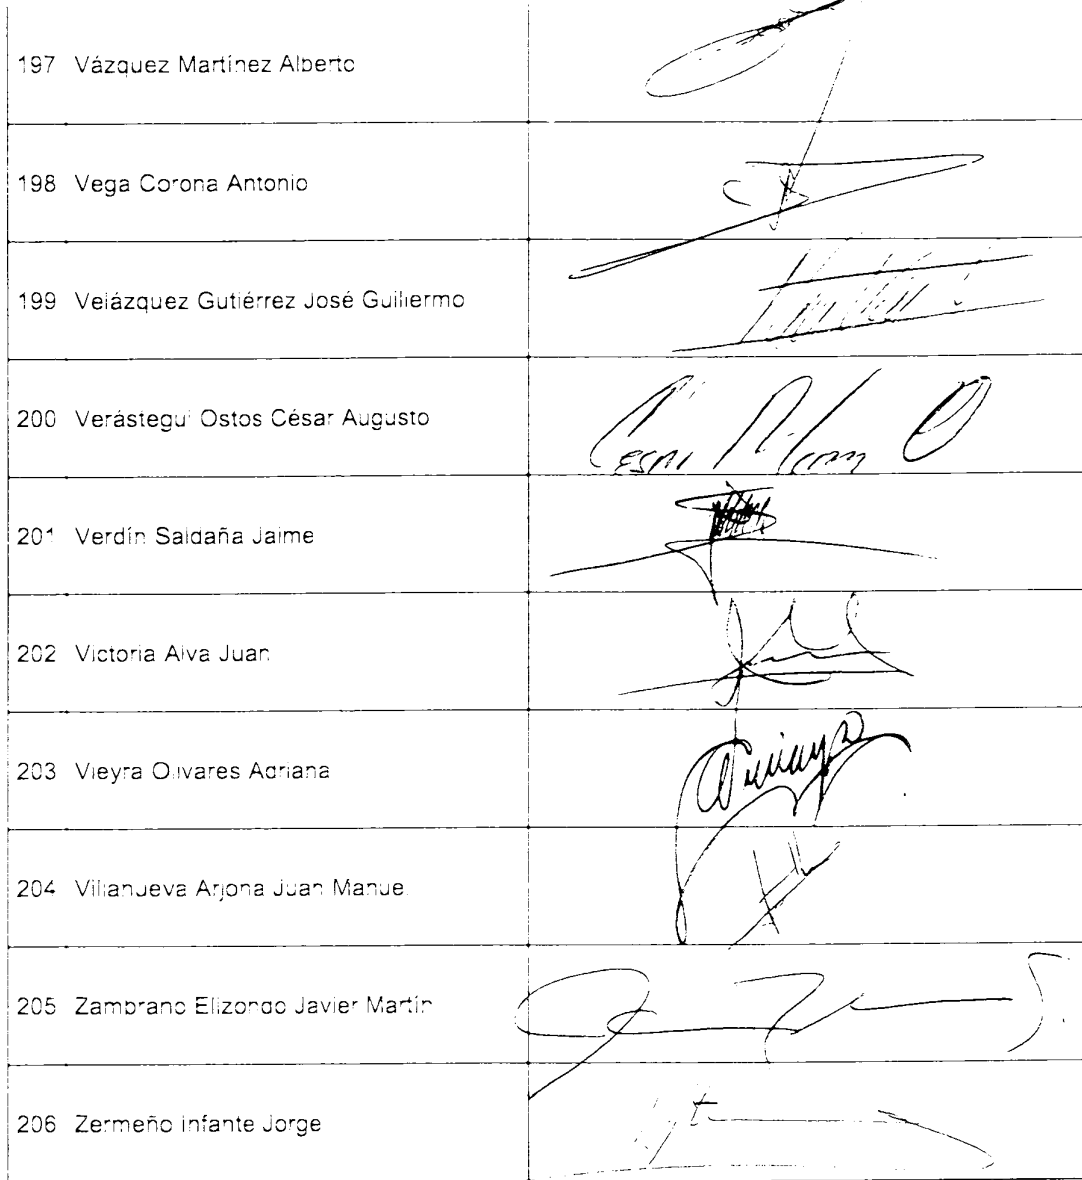 197 Vázquez Martínez Alberto
198 Vega Corona Antonio
199 Velázquez Gutiérrez José Guillermo
200 Verástegui Ostos César Augusto
201 Verdín Saldaña Jaime
202 Victoria Alva Juan
203 Vieyra Olivares Adriana
204 Villanueva Arjona Juan Manuel
205 Zambrano Elizondo Javier Martín
206 Zermeño Infante Jorge